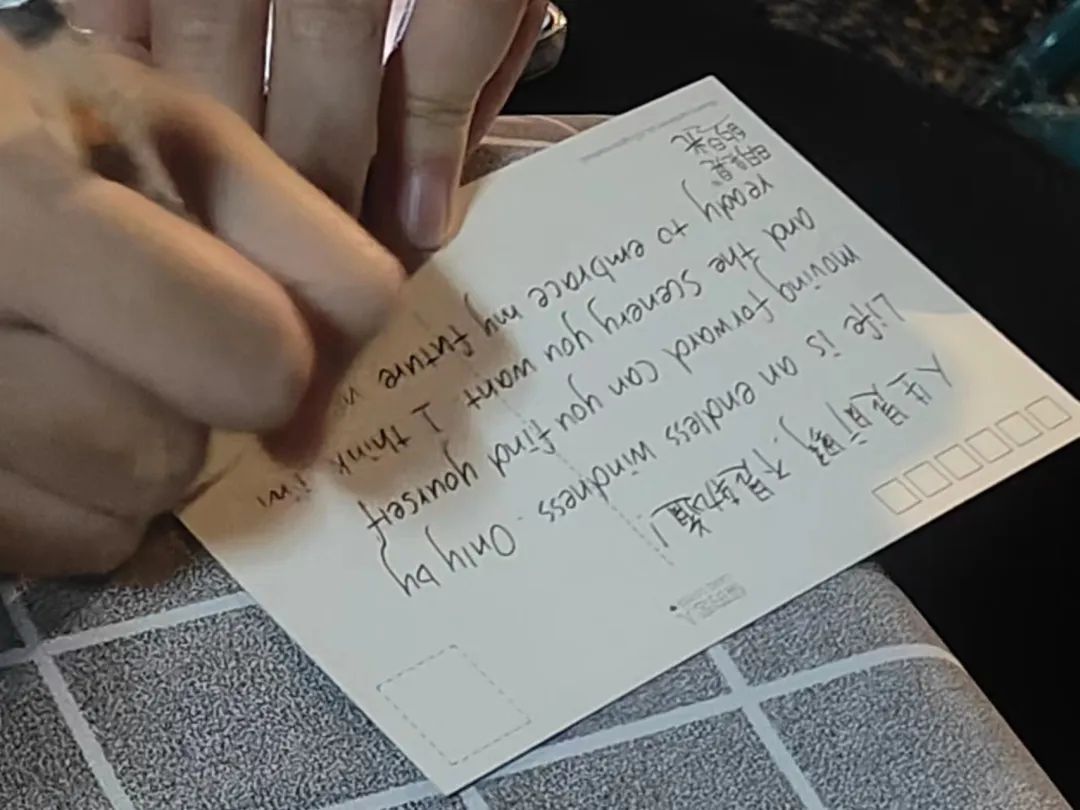 人生是旷野，不是轨道！
Life is an endless windness. Only by
moving forward can you find yourself
and the scenery you want I think I'm
ready to embrace my future